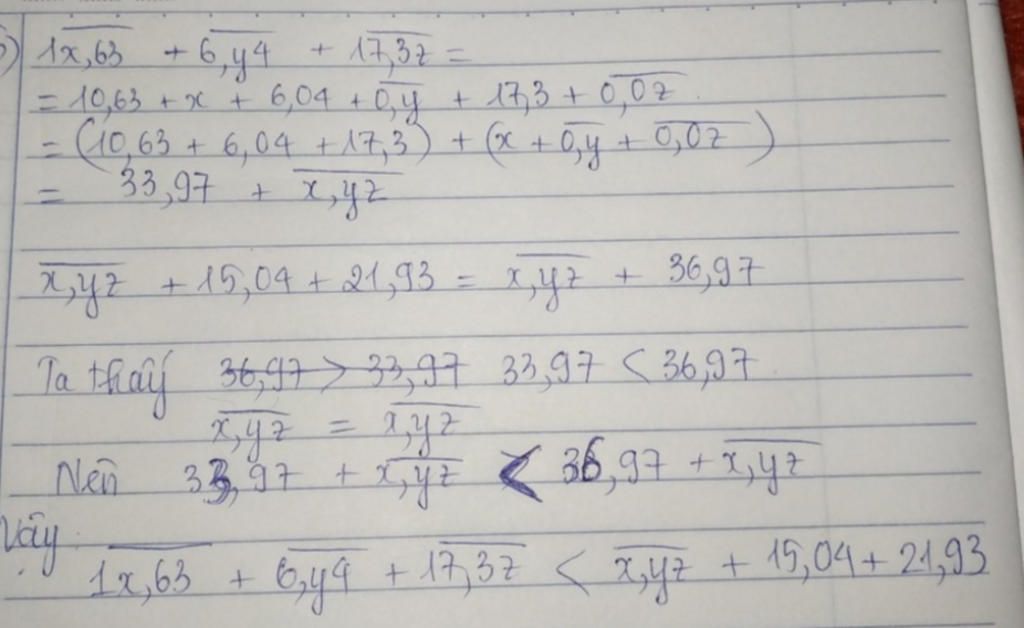 5) 1x,63 + 6,y4 + 17,3z =
= 10,63 + x + 6,04 + 0,y + 17,3 + 0,0z
= (10,63 + 6,04 + 17,3) + (x + 0,y + 0,0z)
= 33,97 + x,yz
x,yz + 15,04 + 21,93 = x,yz + 36,97
Ta thấy 36,97 > 33,97 33,97 < 36,97
x,yz = x,yz
Nên 33,97 + x,yz < 36,97 + x,yz
Vậy
1x,63 + 6,y4 + 17,3z < x,yz + 15,04 + 21,93